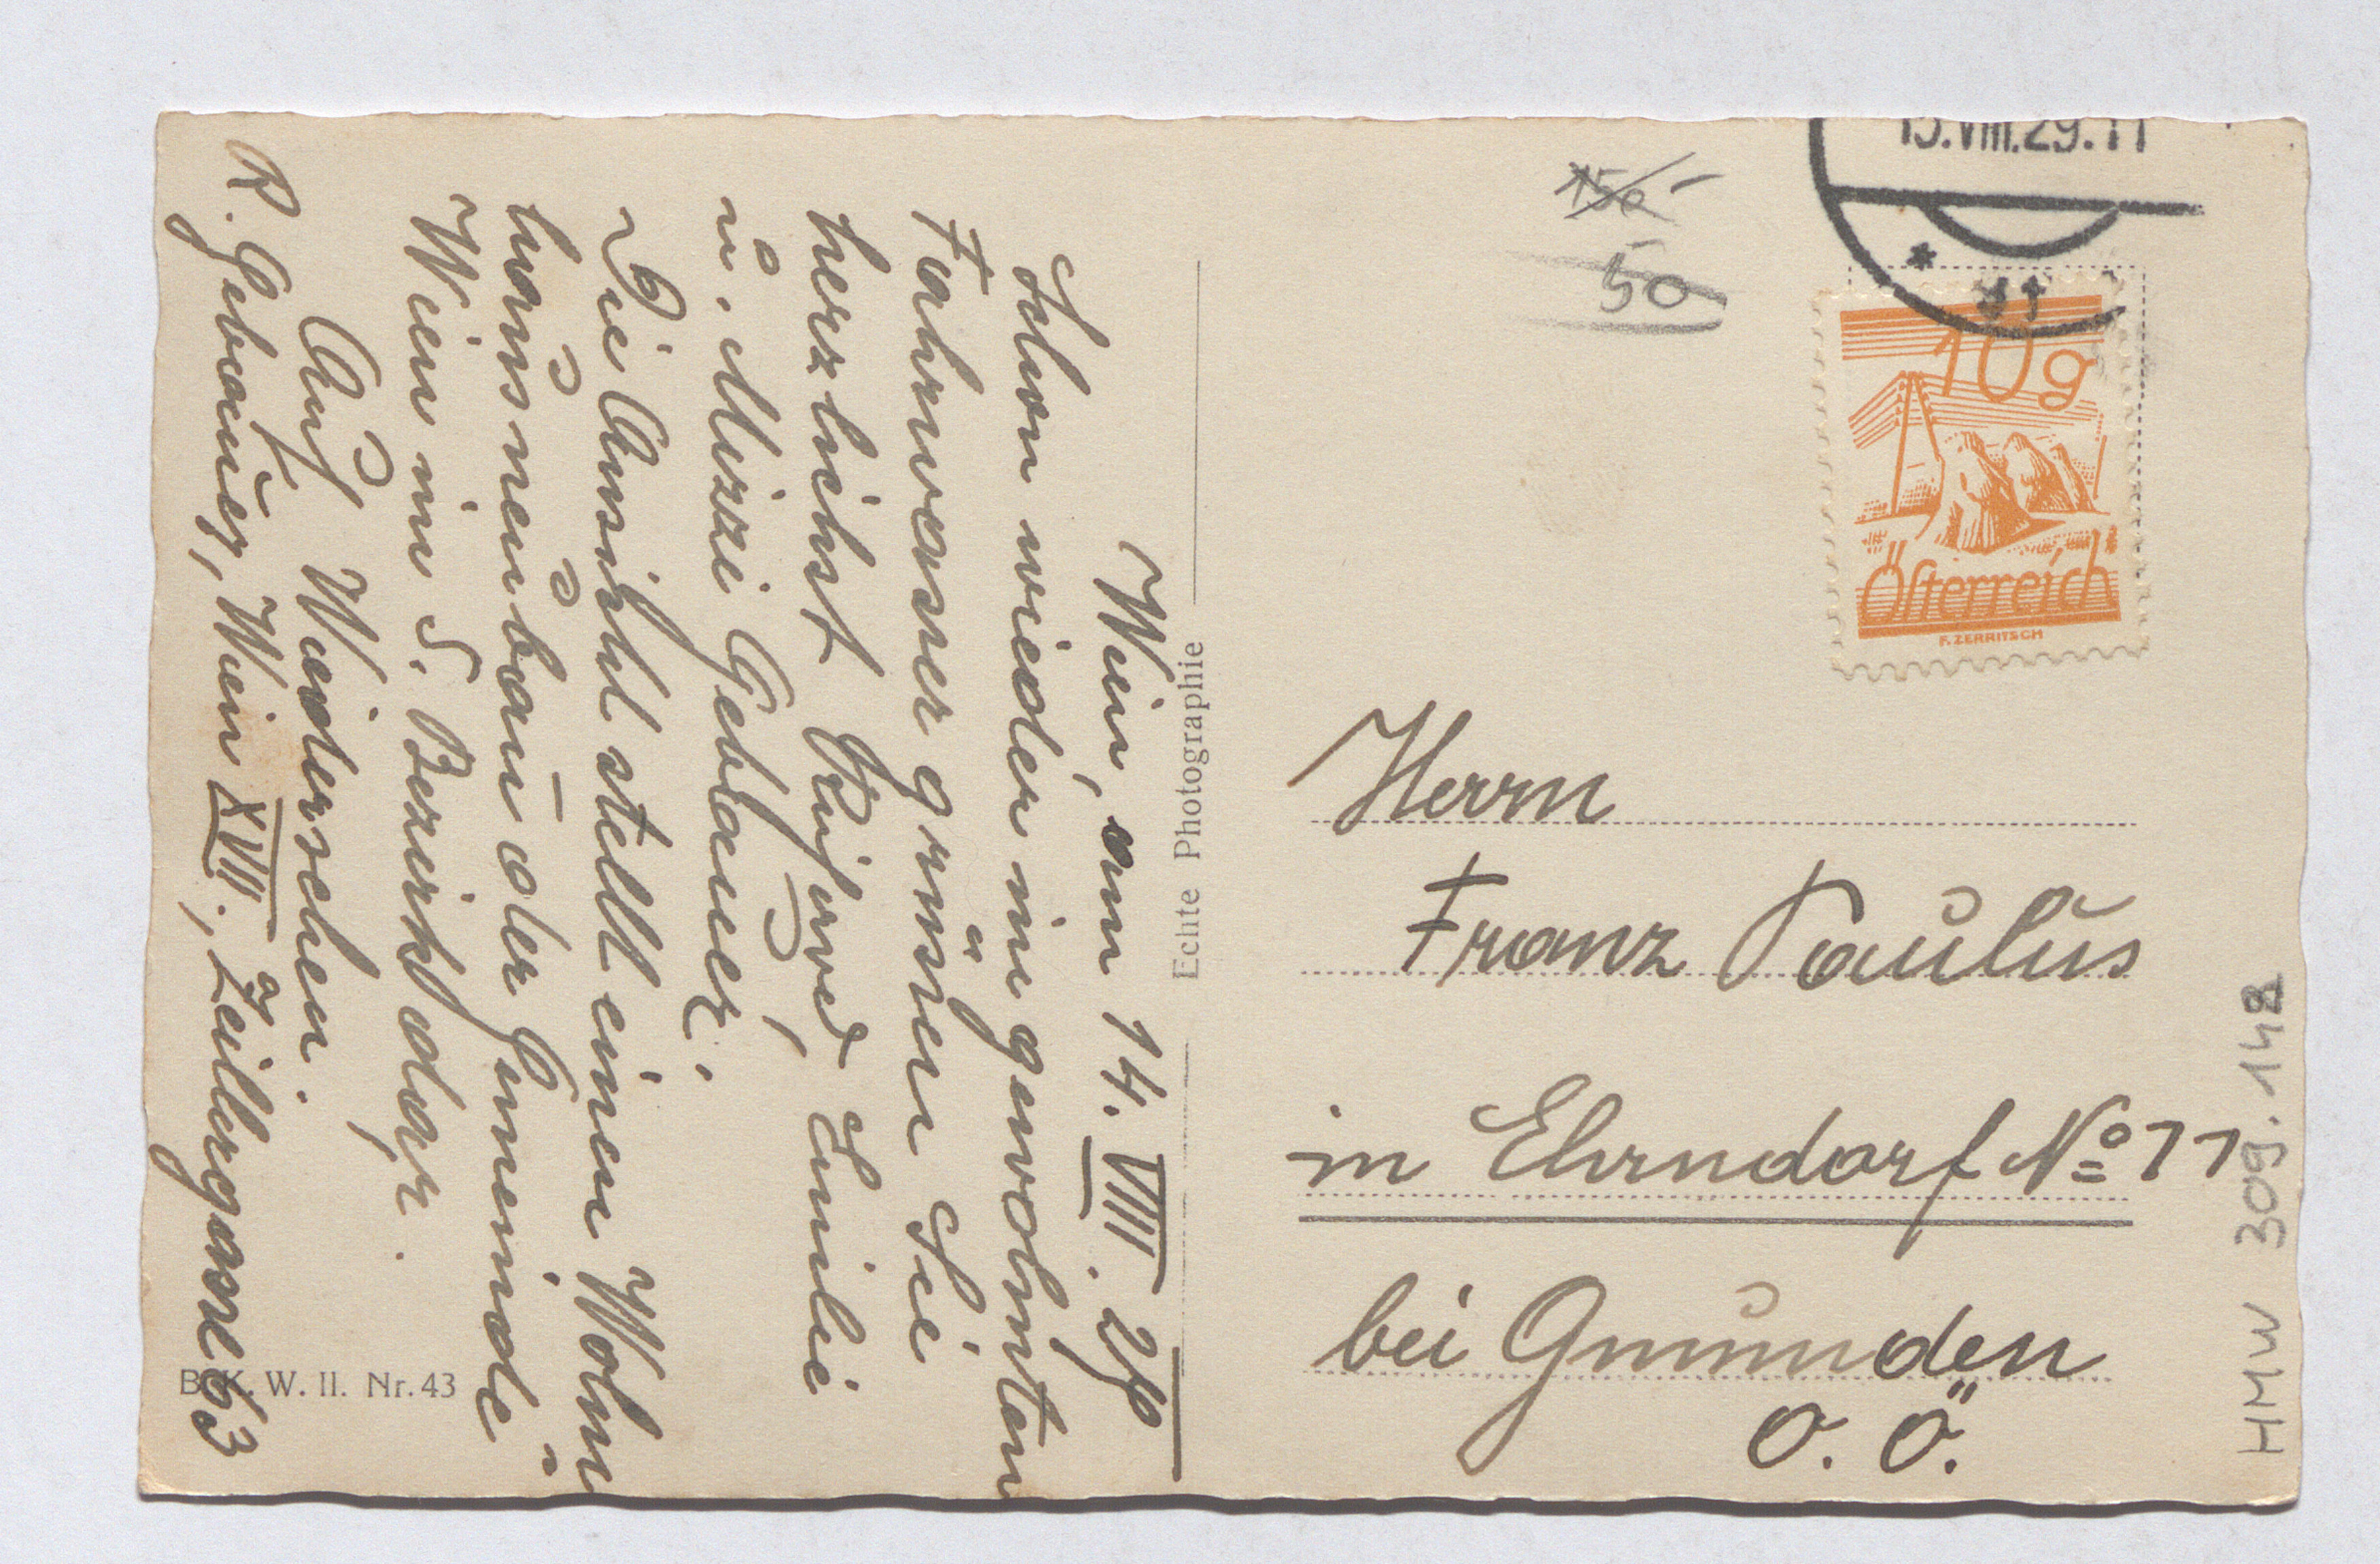 Wien, am 14. VIII. 29
Schon wieder im gewohnten
Fahrwasser grüßen Sie
herzlichst
u. Mizzi Gebauer, Emilie
Die Ansicht stellt einen Wohn=
hausneubau der Gemeinde
Wien im 5. Bezirk dar.
Auf Wiedersehen.
R. Gebauer, Wien XVII., Zeillergasse 63
B.K.W. II. Nr. 43
Echte Photographie
150
50
15.VIII.29.11
10g
Österreich
F. ZERRITSCH
Herrn
Franz Paulus
in Ehrndorf No 11
bei Gmunden
O. Ö.
HMW 309.148